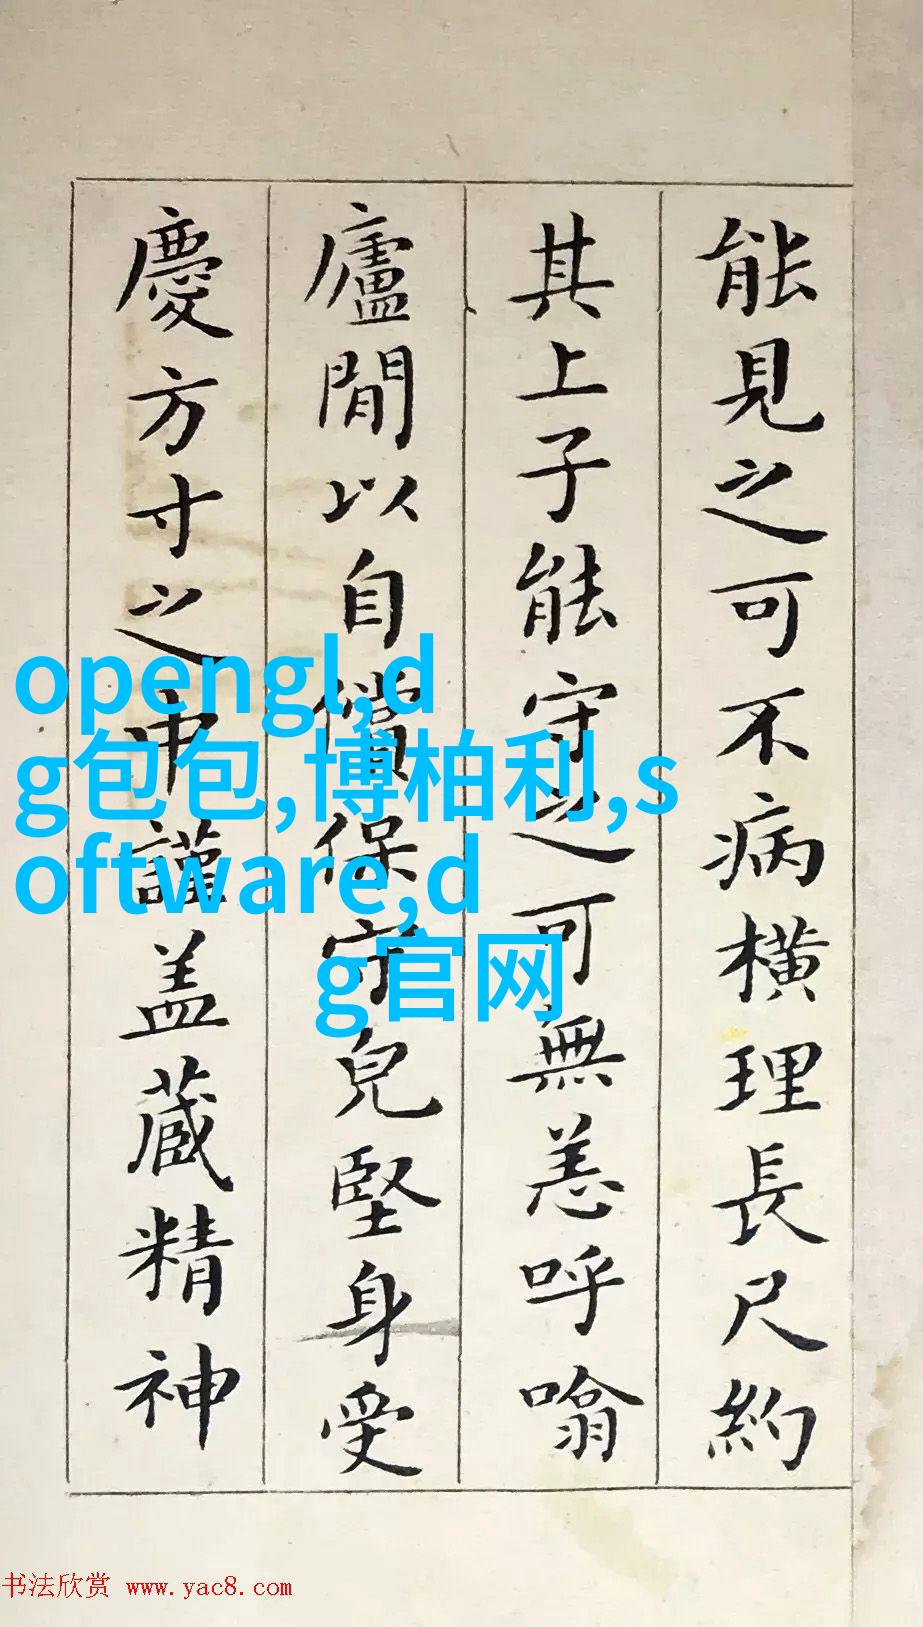 能見之可不病橫理長尺約
其上子能守之可無恙呼噏
廬閒以自償保守兒堅身受
慶方寸之中謹盖藏精神
opengl,d
g包包,博柏利,s
oftware,d
g官网
书法欣赏 www.yac8.com